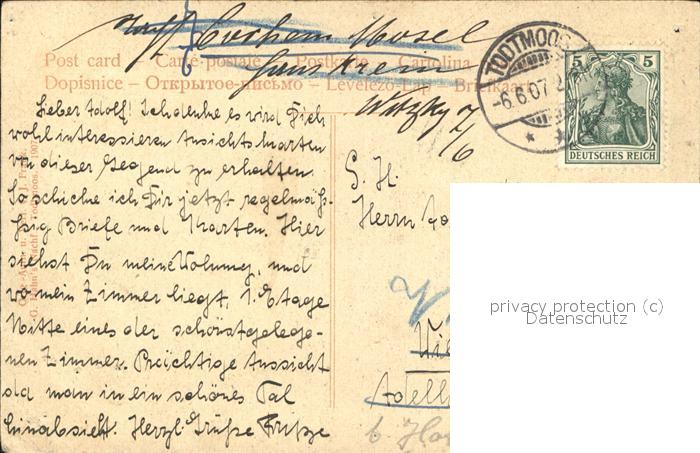 Cochem Mosel
Post card – Carte postale – Postkarte – Cartolina
Dopisnice – Открытое письмо – Levelező-Lap – Briefkaart
TODTMOOS
-6.6.07.
5 5
DEUTSCHES REICH
7/6
Lieber Adolf! Ich denke es wird Dich
wohl interessieren Ansichtskarten
von dieser Gegend zu erhalten.
So schicke ich Dir jetzt regelmäs-
sig Briefe und Karten. Hier
siehst Du meine Wohnung, und
wo mein Zimmer liegt, 1. Etage
Mitte eines der schönstgelege-
nen Zimmer. Prächtige Aussicht
da man in ein schönes Tal
hinabsieht. Herzl. Grüße
S. H.
Herrn
privacy protection (c)
Datenschutz